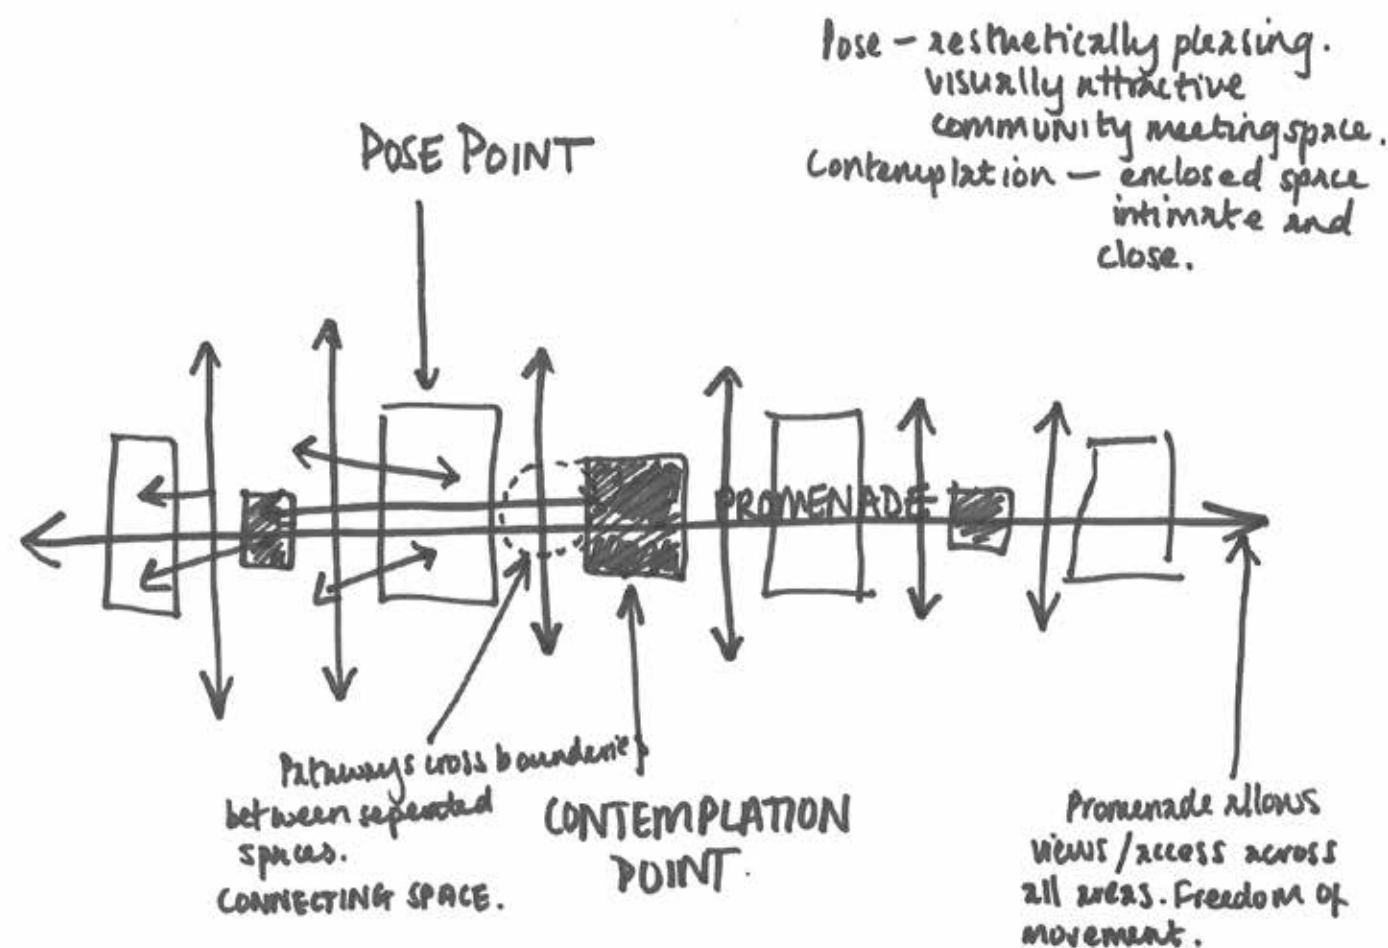 Pose - aesthetically pleasing.
visually attractive
community meeting space.
Contemplation - enclosed space
intimate and
close.
POSE POINT
PROMENADE
Pathways cross boundaries
between seperated
spaces.
CONNECTING SPACE.
CONTEMPLATION
POINT.
Promenade allows
views/access across
all areas. Freedom of
movement.